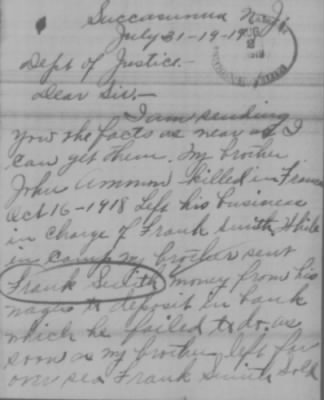 Succasunna N.J.
July 31-19-19
Dept of Justice.-
Dear Sir,-
I am sending
you the facts as near as I
can get them. My brother
John Ammon killed in France
Oct 16-1918 Left his business
in charge of Frank Smith. While
in camp my brother sent
Frank Smith money from his
wages to deposit in bank
which he failed to do. as
soon as my brother left for
over sea Frank Smith sold